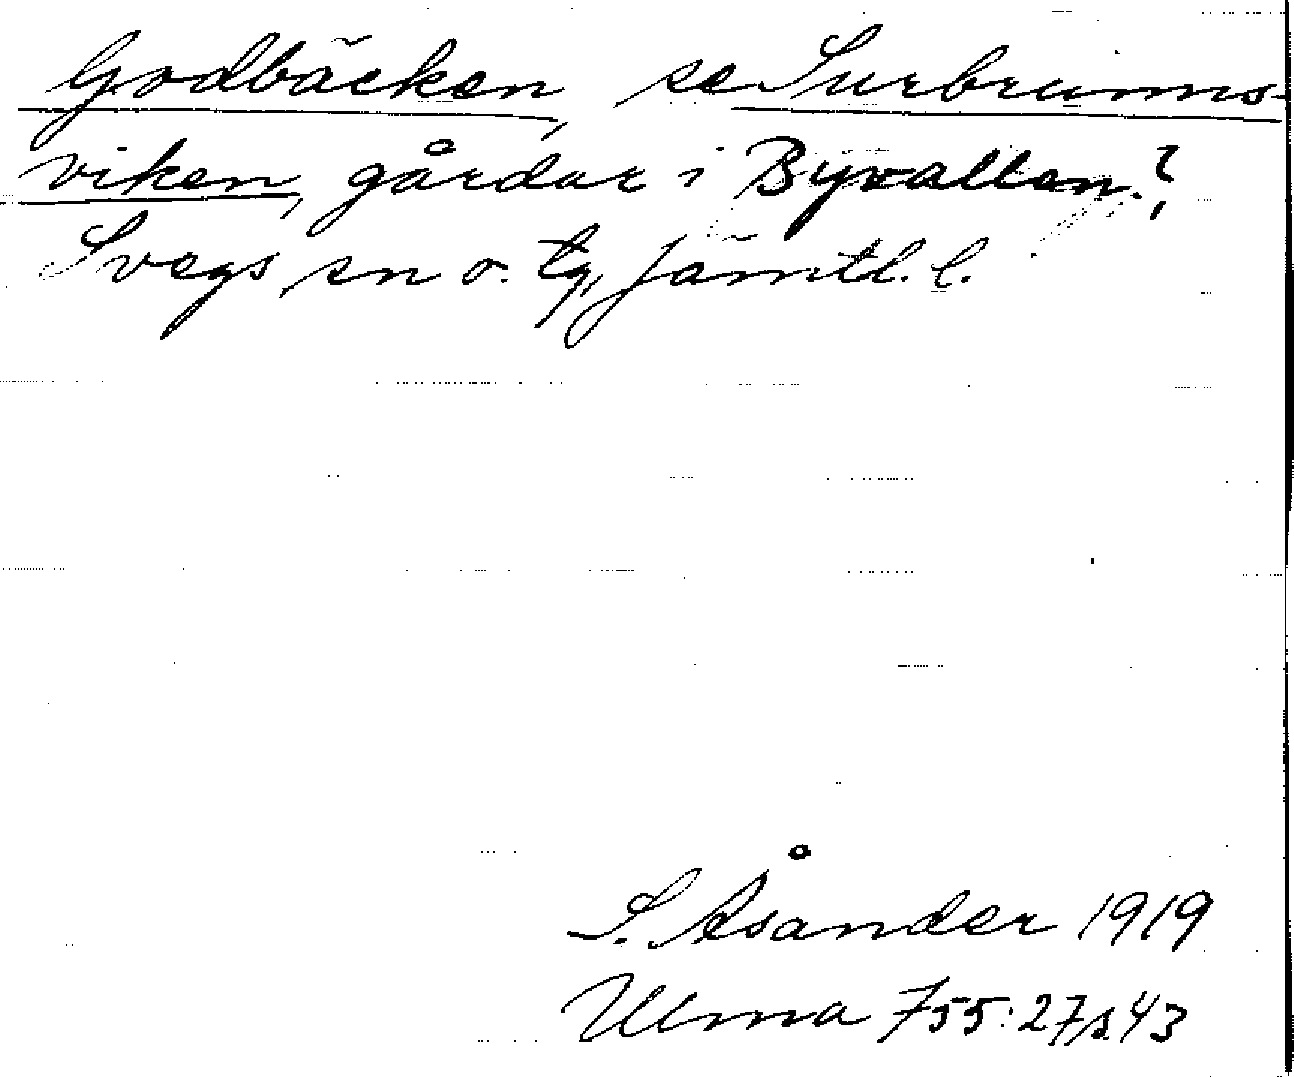 Godbäcken, se Surbrunns-
viken, gårdar i Byvallen?,
Svegs sn o. tg, Jämtl. l.
S. Åsander 1919
Ulma 755:27 s. 43